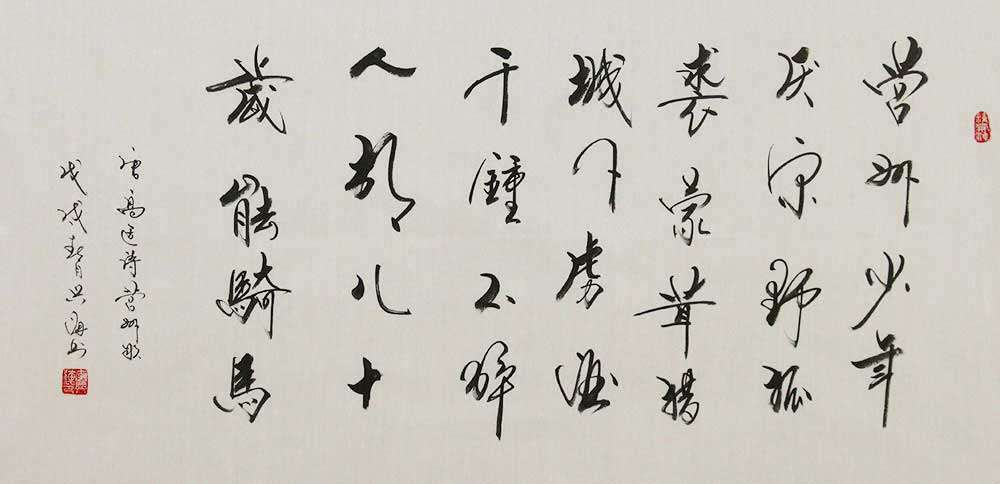 营州少年
厌原野狐
裘蒙茸猎
城下虏酒
千鍾不醉
人胡儿十
歲能騎馬
唐高适詩营州歌
戊戌春月海书